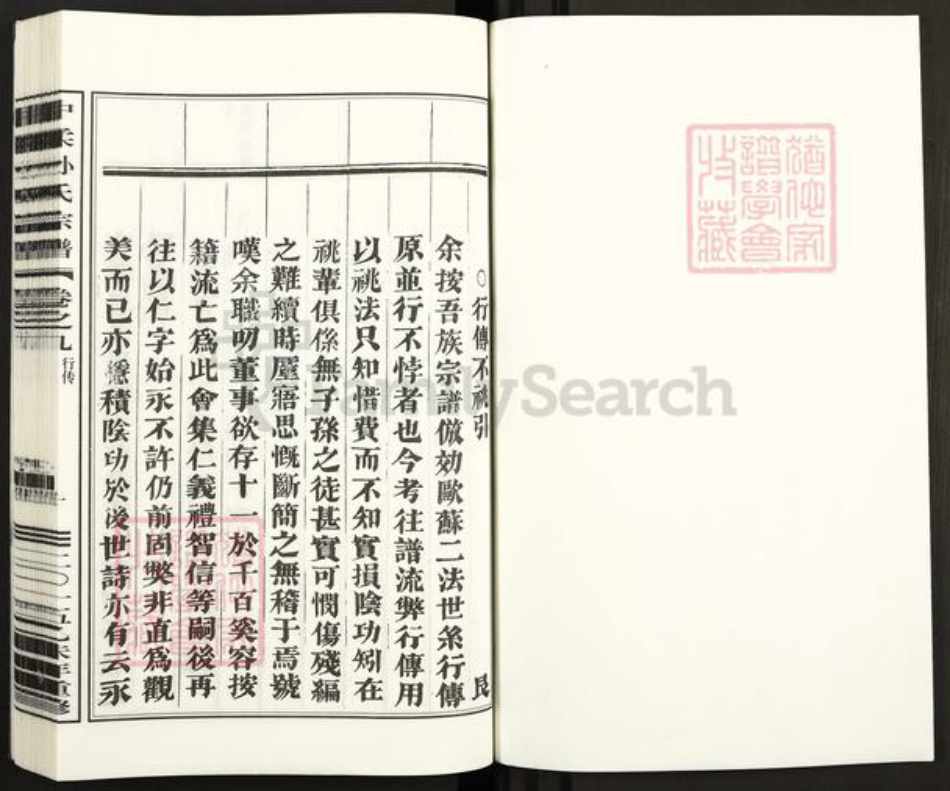 猶他家
譜學會
收藏
○行傳不祧引
艮
余按吾族宗譜倣効歐蘇二法世系行傳
原並行不悖者也今考往譜流弊行傳用
以祧法只知惜費而不知實損陰功矧在
祧輩俱係無子孫之徒甚實可憫傷殘編
之難續時廑寤思慨斷簡之無稽于焉號
嘆余職叨董事欲存十一於千百奚容按
籍流亡爲此會集仁義禮智信等嗣後再
往以仁字始永不許仍前固獘非直爲觀
美而已亦隱積陰功於後世詩亦有云永
孙氏宗谱【卷之九
行传
一
二〇一五乙未年重修
FamilySearch